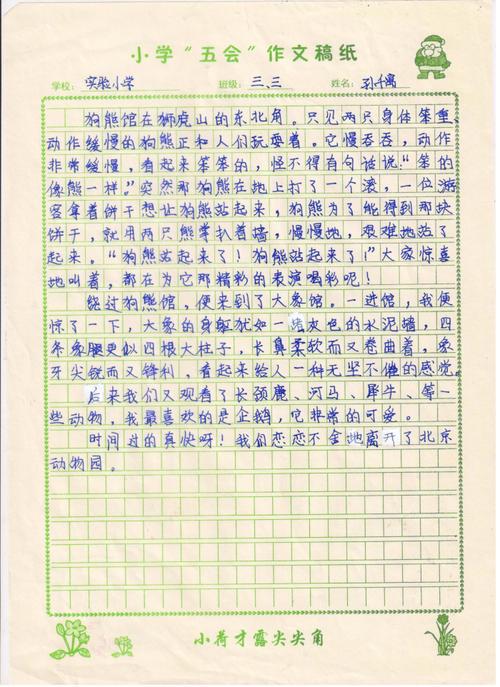 小学“五会”作文稿纸
学校：实验小学 班级：三、三 姓名：孙千寓
狗熊馆在狮虎山的东北角。只见两只身体笨重、
动作缓慢的狗熊正和人们玩耍着。它慢吞吞，动作
非常缓慢，看起来笨笨的，怪不得有句话说：“笨的
像熊一样”突然那狗熊在地上打了一个滚，一位游
客拿着饼干想让狗熊站起来，狗熊为了能得到那块
饼干，就用两只熊掌扒着墙，慢慢地，艰难地站了
起来。“狗熊站起来了！狗熊站起来了！”大家惊喜
地叫着，都在为它那精彩的表演喝彩呢！
绕过狗熊馆，便来到了大象馆。一进馆，我便
惊了一下，大象的身躯犹如一堵灰色的水泥墙，四
条象腿更似四根大柱子，长鼻柔软而又卷曲着，象
牙尖锐而又锋利，看起来给人一种无坚不催的感觉。
后来我们又观看了长颈鹿、河马、犀牛、等一
些动物，我最喜欢的是企鹅，它非常的可爱。
时间过的真快呀！我们恋恋不舍地离开了北京
动物园。
小荷才露尖尖角